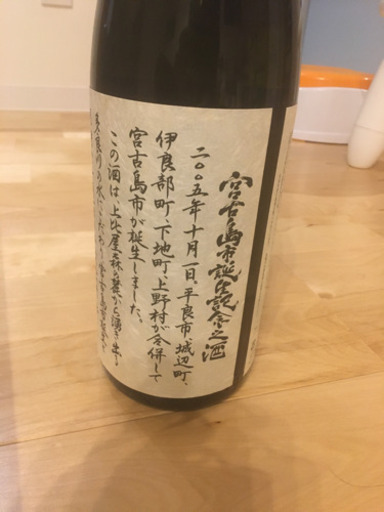 宮古島市誕生記念之酒
二〇〇五年十月一日、平良市、城辺町、
伊良部町、下地町、上野村が合併して
宮古島市が誕生しました。
この酒は、上比屋森の麓から湧き出る